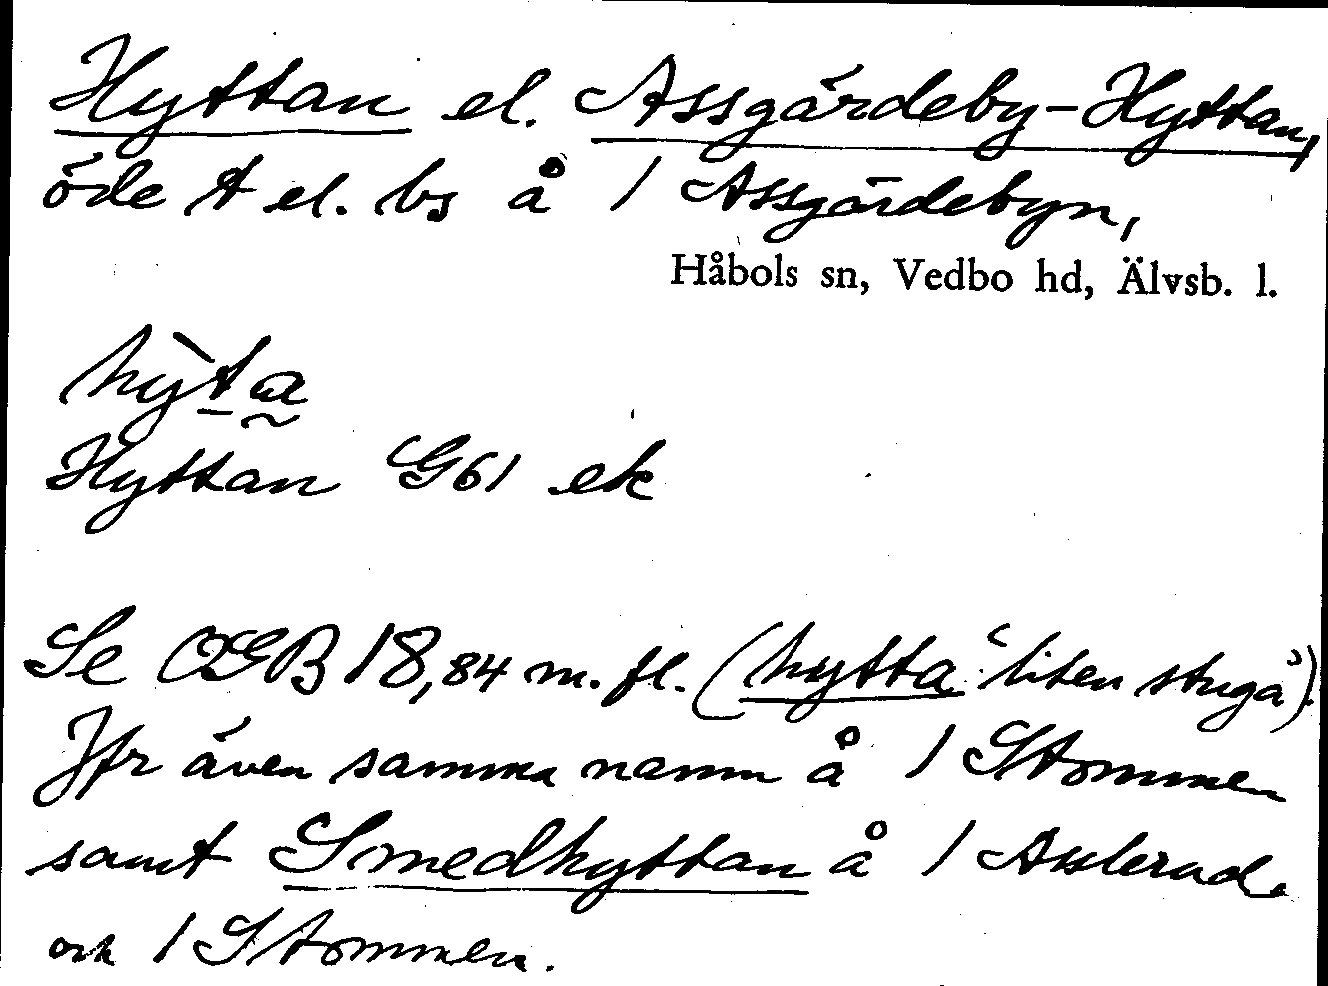 Hyttan el. Assgärdeby-Hyttan,
öde t el. bs å 1 Assgärdebyn,
Håbols sn, Vedbo hd, Älvsb. l.
hỳta
Hyttan G61 ek
Se OGB 18,84 m. fl. (hytta "liten stuga").
Jfr även samma namn å 1 Stommen
samt Smedhyttan å 1 Asslerud
och 1 Stommen.